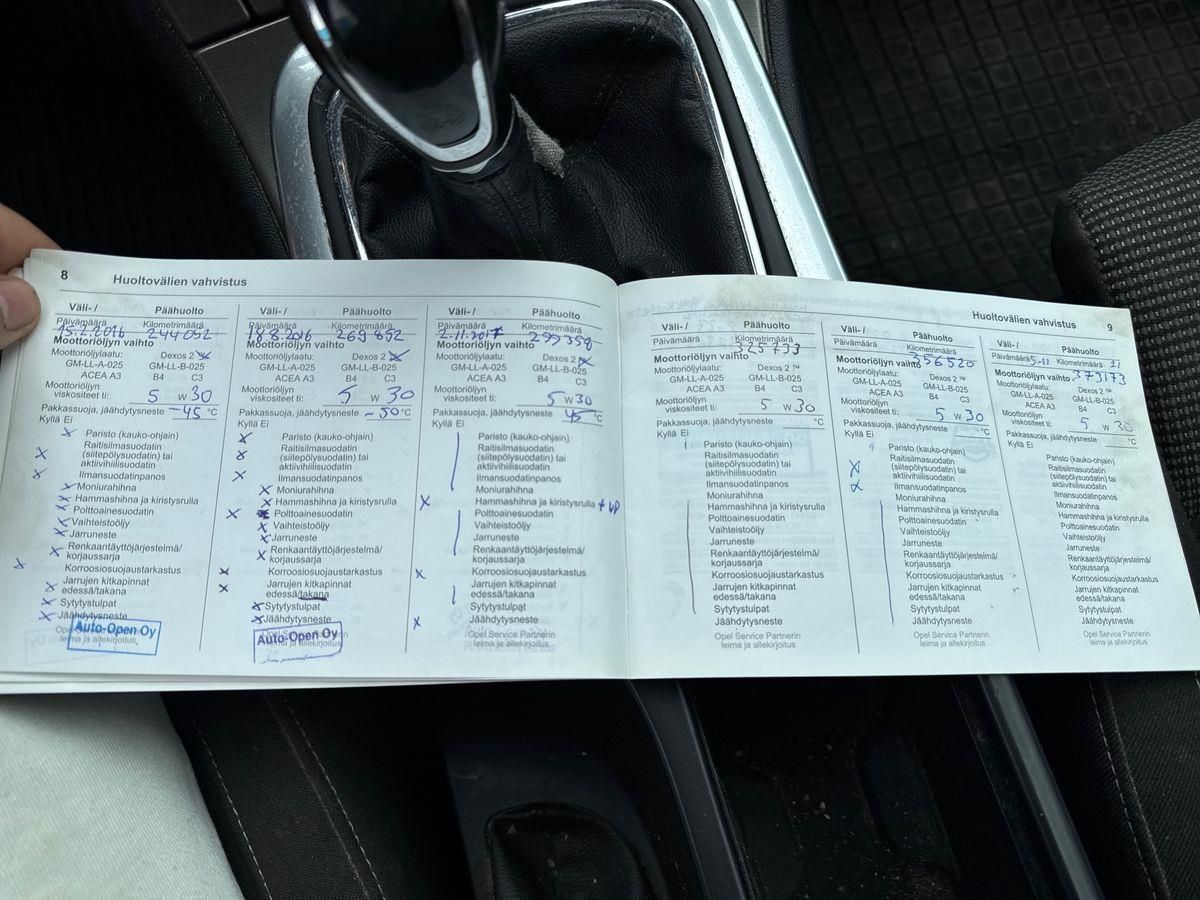 8
Huoltovälien vahvistus
Väli- / Päähuolto
Päivämäärä Kilometrimäärä
15.2.2016 244092
Moottoriöljyn vaihto
Moottoriöljylaatu: Dexos 2
GM-LL-A-025 GM-LL-B-025
ACEA A3 B4 C3
Moottoriöljyn
viskositeet ti: 5 W 30
Pakkassuoja, jäähdytysneste -45 °C
Kyllä Ei
Paristo (kauko-ohjain)
Raitisilmasuodatin
(siitepölysuodatin) tai
aktiivihiilisuodatin
Ilmansuodatinpanos
Moniurahihna
Hammashihna ja kiristysrulla
Polttoainesuodatin
Vaihteistoöljy
Jarruneste
Renkaantäyttöjärjestelmä/
korjaussarja
Korroosiosuojaustarkastus
Jarrujen kitkapinnat
edessä/takana
Sytytystulpat
Jäähdytysneste
Auto-Open Oy
leima ja allekirjoitus
Väli- / Päähuolto
Päivämäärä Kilometrimäärä
18.8.2016 269 852
Moottoriöljyn vaihto
Moottoriöljylaatu: Dexos 2
GM-LL-A-025 GM-LL-B-025
ACEA A3 B4 C3
Moottoriöljyn
viskositeet ti: 5 W 30
Pakkassuoja, jäähdytysneste -50 °C
Kyllä Ei
Paristo (kauko-ohjain)
Raitisilmasuodatin
(siitepölysuodatin) tai
aktiivihiilisuodatin
Ilmansuodatinpanos
Moniurahihna
Hammashihna ja kiristysrulla
Polttoainesuodatin
Vaihteistoöljy
Jarruneste
Renkaantäyttöjärjestelmä/
korjaussarja
Korroosiosuojaustarkastus
Jarrujen kitkapinnat
edessä/takana
Sytytystulpat
Jäähdytysneste
Auto-Open Oy
leima ja allekirjoitus
Väli- / Päähuolto
Päivämäärä Kilometrimäärä
2.11.2017 299358
Moottoriöljyn vaihto
Moottoriöljylaatu: Dexos 2
GM-LL-A-025 GM-LL-B-025
ACEA A3 B4 C3
Moottoriöljyn
viskositeet ti: 5 W 30
Pakkassuoja, jäähdytysneste 45 °C
Kyllä Ei
Paristo (kauko-ohjain)
Raitisilmasuodatin
(siitepölysuodatin) tai
aktiivihiilisuodatin
Ilmansuodatinpanos
Moniurahihna
Hammashihna ja kiristysrulla + VP
Polttoainesuodatin
Vaihteistoöljy
Jarruneste
Renkaantäyttöjärjestelmä/
korjaussarja
Korroosiosuojaustarkastus
Jarrujen kitkapinnat
edessä/takana
Sytytystulpat
Jäähdytysneste
Opel Service Partnerin
leima ja allekirjoitus
Huoltovälien vahvistus
9
Väli- / Päähuolto
Päivämäärä Kilometrimäärä
325733
Moottoriöljyn vaihto
Moottoriöljylaatu: Dexos 2 ™
GM-LL-A-025 GM-LL-B-025
ACEA A3 B4 C3
Moottoriöljyn
viskositeet ti: 5 W 30
Pakkassuoja, jäähdytysneste °C
Kyllä Ei
Paristo (kauko-ohjain)
Raitisilmasuodatin
(siitepölysuodatin) tai
aktiivihiilisuodatin
Ilmansuodatinpanos
Moniurahihna
Hammashihna ja kiristysrulla
Polttoainesuodatin
Vaihteistoöljy
Jarruneste
Renkaantäyttöjärjestelmä/
korjaussarja
Korroosiosuojaustarkastus
Jarrujen kitkapinnat
edessä/takana
Sytytystulpat
Jäähdytysneste
Opel Service Partnerin
leima ja allekirjoitus
Väli- / Päähuolto
Päivämäärä Kilometrimäärä
Moottoriöljyn vaihto 356520
Moottoriöljylaatu: Dexos 2 ™
GM-LL-A-025 GM-LL-B-025
ACEA A3 B4 C3
Moottoriöljyn
viskositeet ti: 5 W 30
Pakkassuoja, jäähdytysneste °C
Kyllä Ei
Paristo (kauko-ohjain)
Raitisilmasuodatin
(siitepölysuodatin) tai
aktiivihiilisuodatin
Ilmansuodatinpanos
Moniurahihna
Hammashihna ja kiristysrulla
Polttoainesuodatin
Vaihteistoöljy
Jarruneste
Renkaantäyttöjärjestelmä/
korjaussarja
Korroosiosuojaustarkastus
Jarrujen kitkapinnat
edessä/takana
Sytytystulpat
Jäähdytysneste
Opel Service Partnerin
leima ja allekirjoitus
Väli- / Päähuolto
Päivämäärä 5-11 Kilometrimäärä 21
Moottoriöljyn vaihto 373173
Moottoriöljylaatu: Dexos 2 ™
GM-LL-A-025 GM-LL-B-025
ACEA A3 B4 C3
Moottoriöljyn
viskositeet ti: 5 W 30
Pakkassuoja, jäähdytysneste °C
Kyllä Ei
Paristo (kauko-ohjain)
Raitisilmasuodatin
(siitepölysuodatin) tai
aktiivihiilisuodatin
Ilmansuodatinpanos
Moniurahihna
Hammashihna ja kiristysrulla
Polttoainesuodatin
Vaihteistoöljy
Jarruneste
Renkaantäyttöjärjestelmä/
korjaussarja
Korroosiosuojaustarkastus
Jarrujen kitkapinnat
edessä/takana
Sytytystulpat
Jäähdytysneste
Opel Service Partnerin
leima ja allekirjoitus